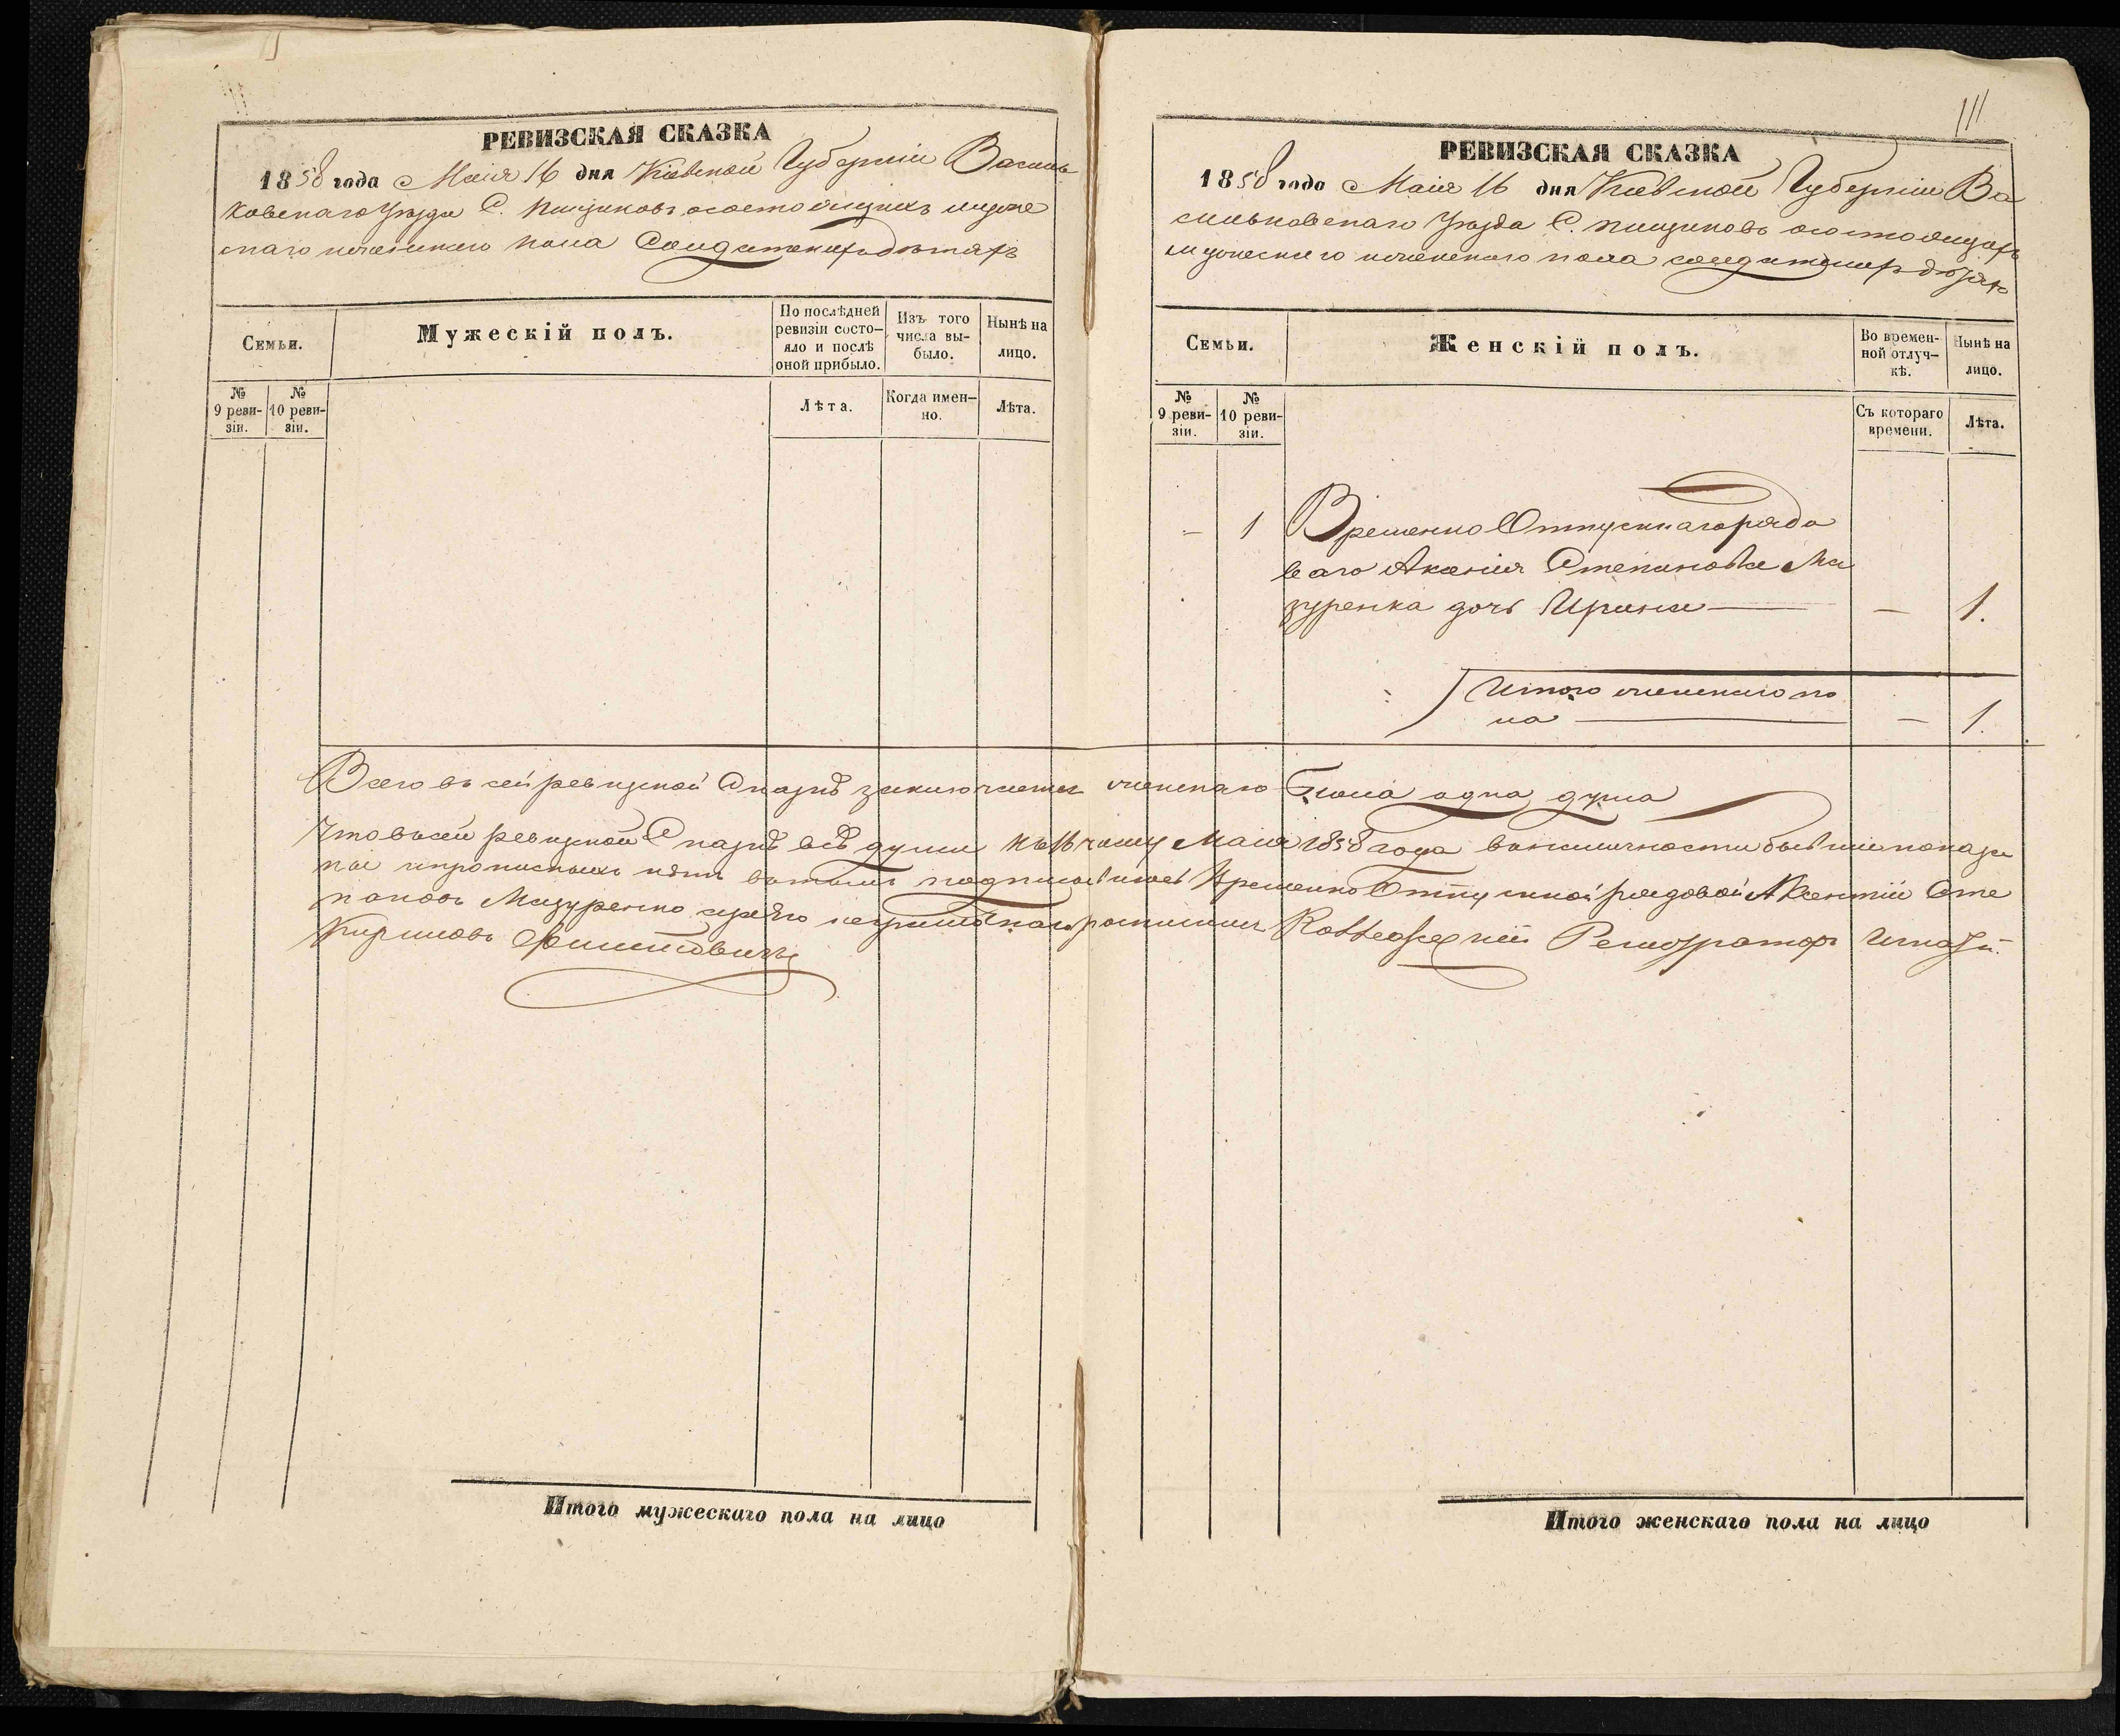 РЕВИЗСКАЯ СКАЗКА
1858 года Маія 16 дня Кіевской Губерніи Василь
ковскаго Уезда С. Пищиковъ о состоящихъ мужес
скаго и женскаго пола Солдатскихъ детяхъ
Семьи.
Мужескій полъ.
По послѣдней ревизіи состо-
яло и послѣ оной прибыло.
Изъ того числа вы-
было.
Нынѣ на лицо.
№ 9 реви-
зіи.
№ 10 реви-
зіи.
Лѣта.
Когда имен-
но.
Лѣта.
Итого мужескаго пола на лицо
111
РЕВИЗСКАЯ СКАЗКА
1858 года Маія 16 дня Кіевской Губерніи Ва
сильковскаго Уезда С. Пищиковъ о состоящихъ
мужескаго и женскаго пола солдатскихъ детяхъ
Семьи.
Женскій полъ.
Во времен-
ной отлуч-
кѣ.
Нынѣ на лицо.
№ 9 реви-
зіи.
№ 10 реви-
зіи.
Съ котораго времени.
Лѣта.
- 1 Временно Отпускнаго рядо
ваго Аксентія Степанова Ма
зуренка дочь Ирина — — 1.
Итого женскаго по
ла — — 1.
Всего въ сей ревизской Сказкѣ заключается женскаго пола одна душа
Что въ сей ревизской Сказкѣ всѣ души къ 16 числу Маія 1858 года въ наличности бывшіе показа
ны и прописныхъ нѣтъ въ томъ подписался Временно Отпускной рядовой Аксентій Сте
пановъ Мазуренко а за него неграмотнаго росписался Коллежскій Регистраторъ Игнатій
Кириловъ
Итого женскаго пола на лицо